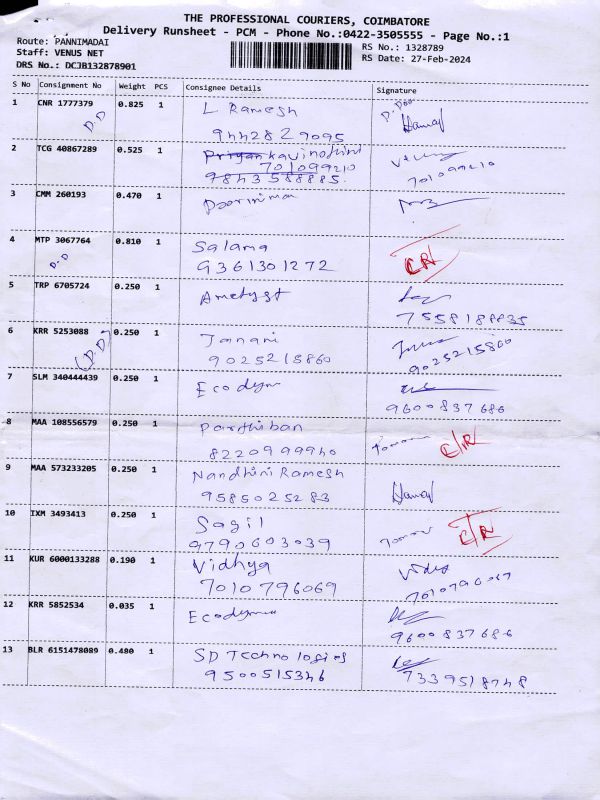 THE PROFESSIONAL COURIERS, COIMBATORE
Delivery Runsheet - PCM - Phone No.:0422-3505555 - Page No.:1
Route: PANNIMADAI
Staff: VENUS NET
DRS No.: DCJB132878901
RS No.: 1328789
RS Date: 27-Feb-2024
S No Consignment No Weight PCS Consignee Details Signature
1 CNR 1777379 0.825 1 L Ramesh
D.D 9442829095
2 TCG 40867289 0.525 1 Priyan kavinothini
701099210
9843588885 701099210
3 CMM 260193 0.470 1
4 MTP 3067764 0.810 1 Salama C/R
D.D 9361301272
5 TRP 6705724 0.250 1 Ametyst
7558188835
6 KRR 5253088 0.250 1 Janani
(D.D) 9025215860 9025215860
7 SLM 340444439 0.250 1 Ecodym
9600837686
8 MAA 108556579 0.250 1 Parthiban C/R
8220999940
9 MAA 573233205 0.250 1 Nandhini Ramesh
9585025283
10 IXM 3493413 0.250 1 Sagil C/R
9790603039
11 KUR 6000133288 0.190 1 Vidhya Vidya
7010796069 7010796067
12 KRR 5852534 0.035 1
9600837686
13 BLR 6151478089 0.480 1 SD Technologies
9500515346 7339518748